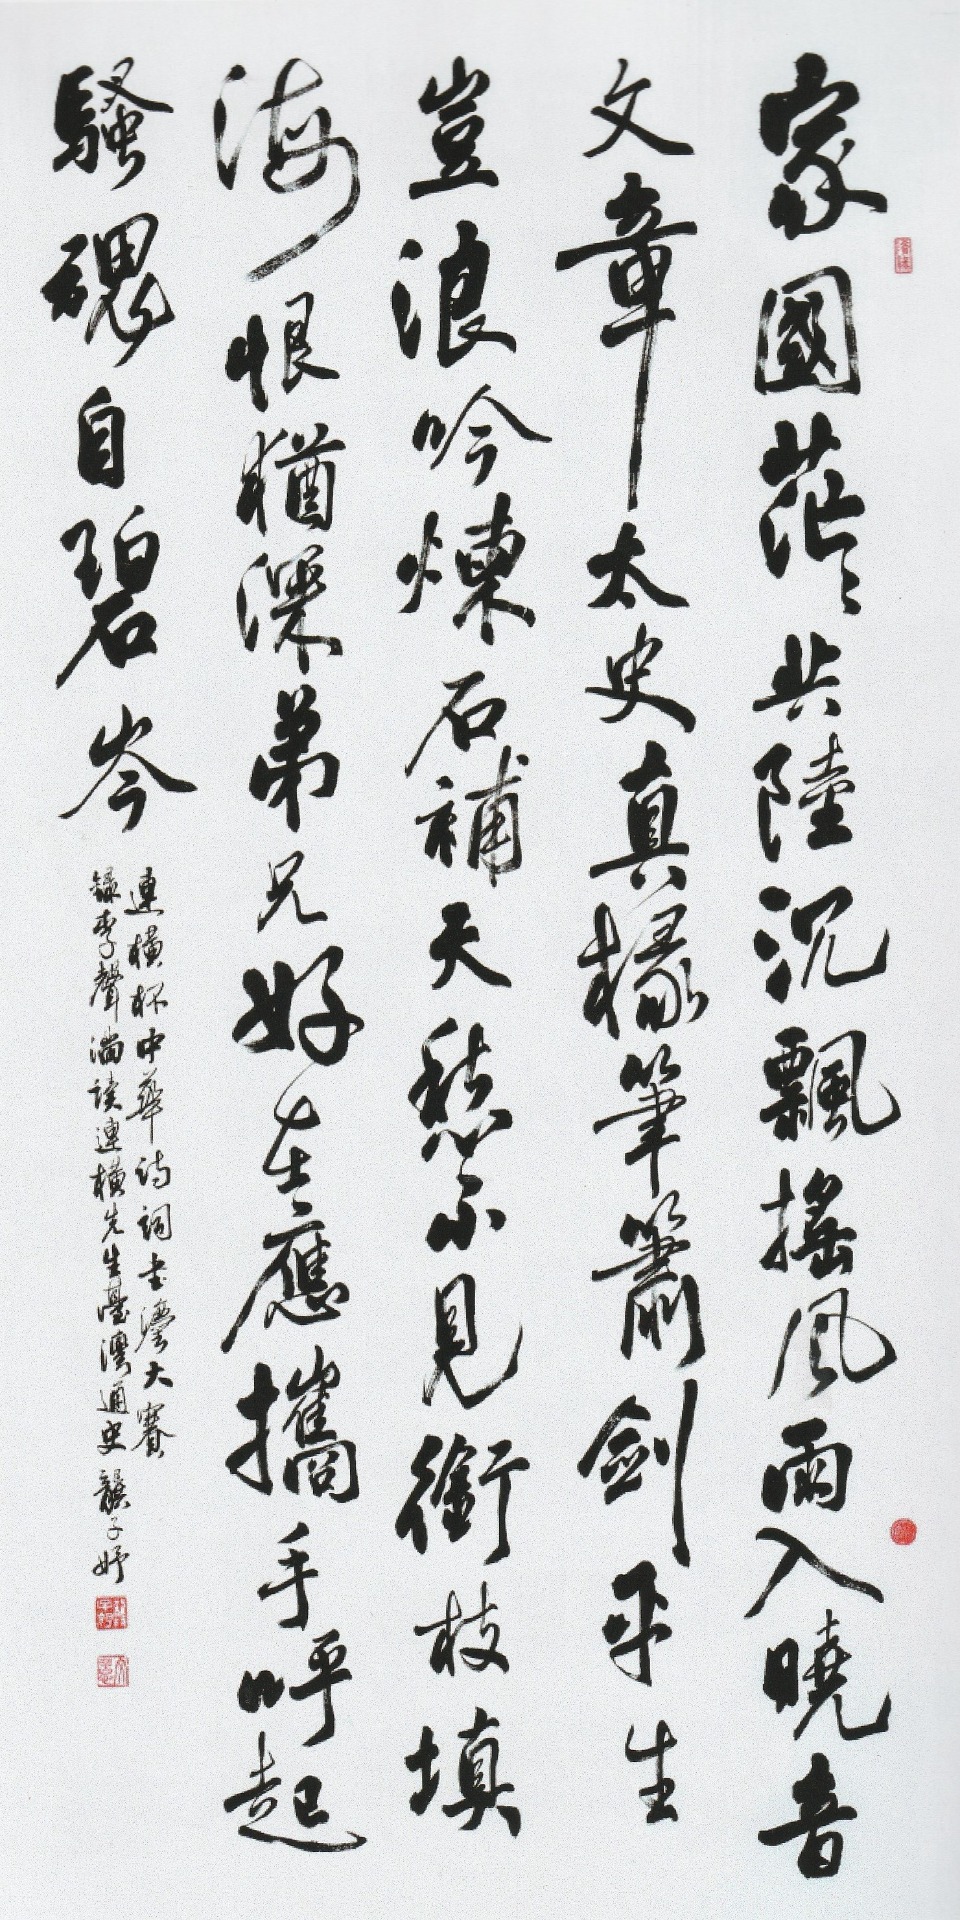 家國茫〻共陸沉飄搖風雨入曉音
文章太史真椽筆簫劍平生
豈浪吟煉石補天愁不見銜枝填
海恨猶深弟兄好在應攜手呼起
騷魂自碧岑
連橫杯中華詩詞書灋大賽
錄李聲滿讀連橫先生臺灣通史 龔子妤